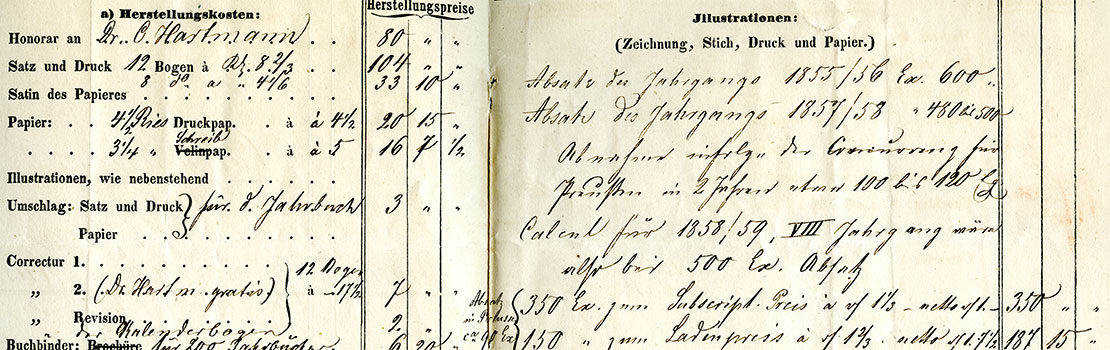 a) Herstellungskosten:
Herstellungspreise
Honorar an Dr. C. Hartmann . . 80 " "
Satz und Druck 12 Bogen à Rt. 8 2/3 . . 104 " "
8 do a " 4 1/6 33 10 "
Satin des Papieres
Papier: . . 4 1/2 Ries Druckpap. . à à 4 1/2 20 15 "
. . . . 3 1/4 " Schreib Velinpap. . à à 5 16 7 1/2
Illustrationen, wie nebenstehend
Umschlag: Satz und Druck } für d. Jahrbuch 3 " "
Papier . .
Correctur 1. 12 Bogen
„ 2. (Dr. Hartm. gratis) à 17 1/2 7 " "
„ Revision 2 "
der Kalenderbogen
Buchbinder: Brochüre für 200 Jahrbücher 6 20 "
Illustrationen:
(Zeichnung, Stich, Druck und Papier.)
Absatz des Jahrgangs 1855/56 Ex. 600
Absatz des Jahrgangs 1857/58 " 480 bis 500
Abnahme infolge der Concurrenz für
Preußen in 2 Jahren etwa 100 bis 120 Ex
Calcul für 1858/59, VIII Jahrgang wäre
also bei 500 Ex. Absatz
Absatz
350 Ex. zum Subscript. Preis à 1 1/3 - netto 1 - 350 " "
ca 90 Ex
150 " zum Ladenpreis à 1 2/3 netto 187 15 "